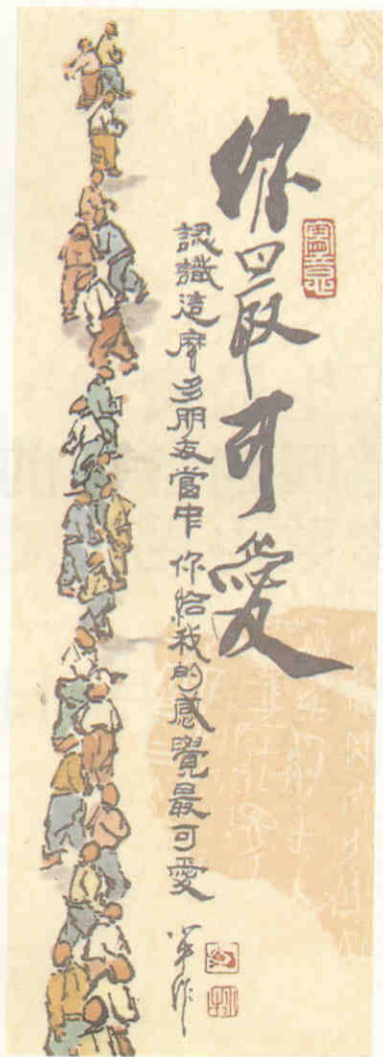 你最可愛
認識這麼多朋友當中 你給我的感覺最可愛